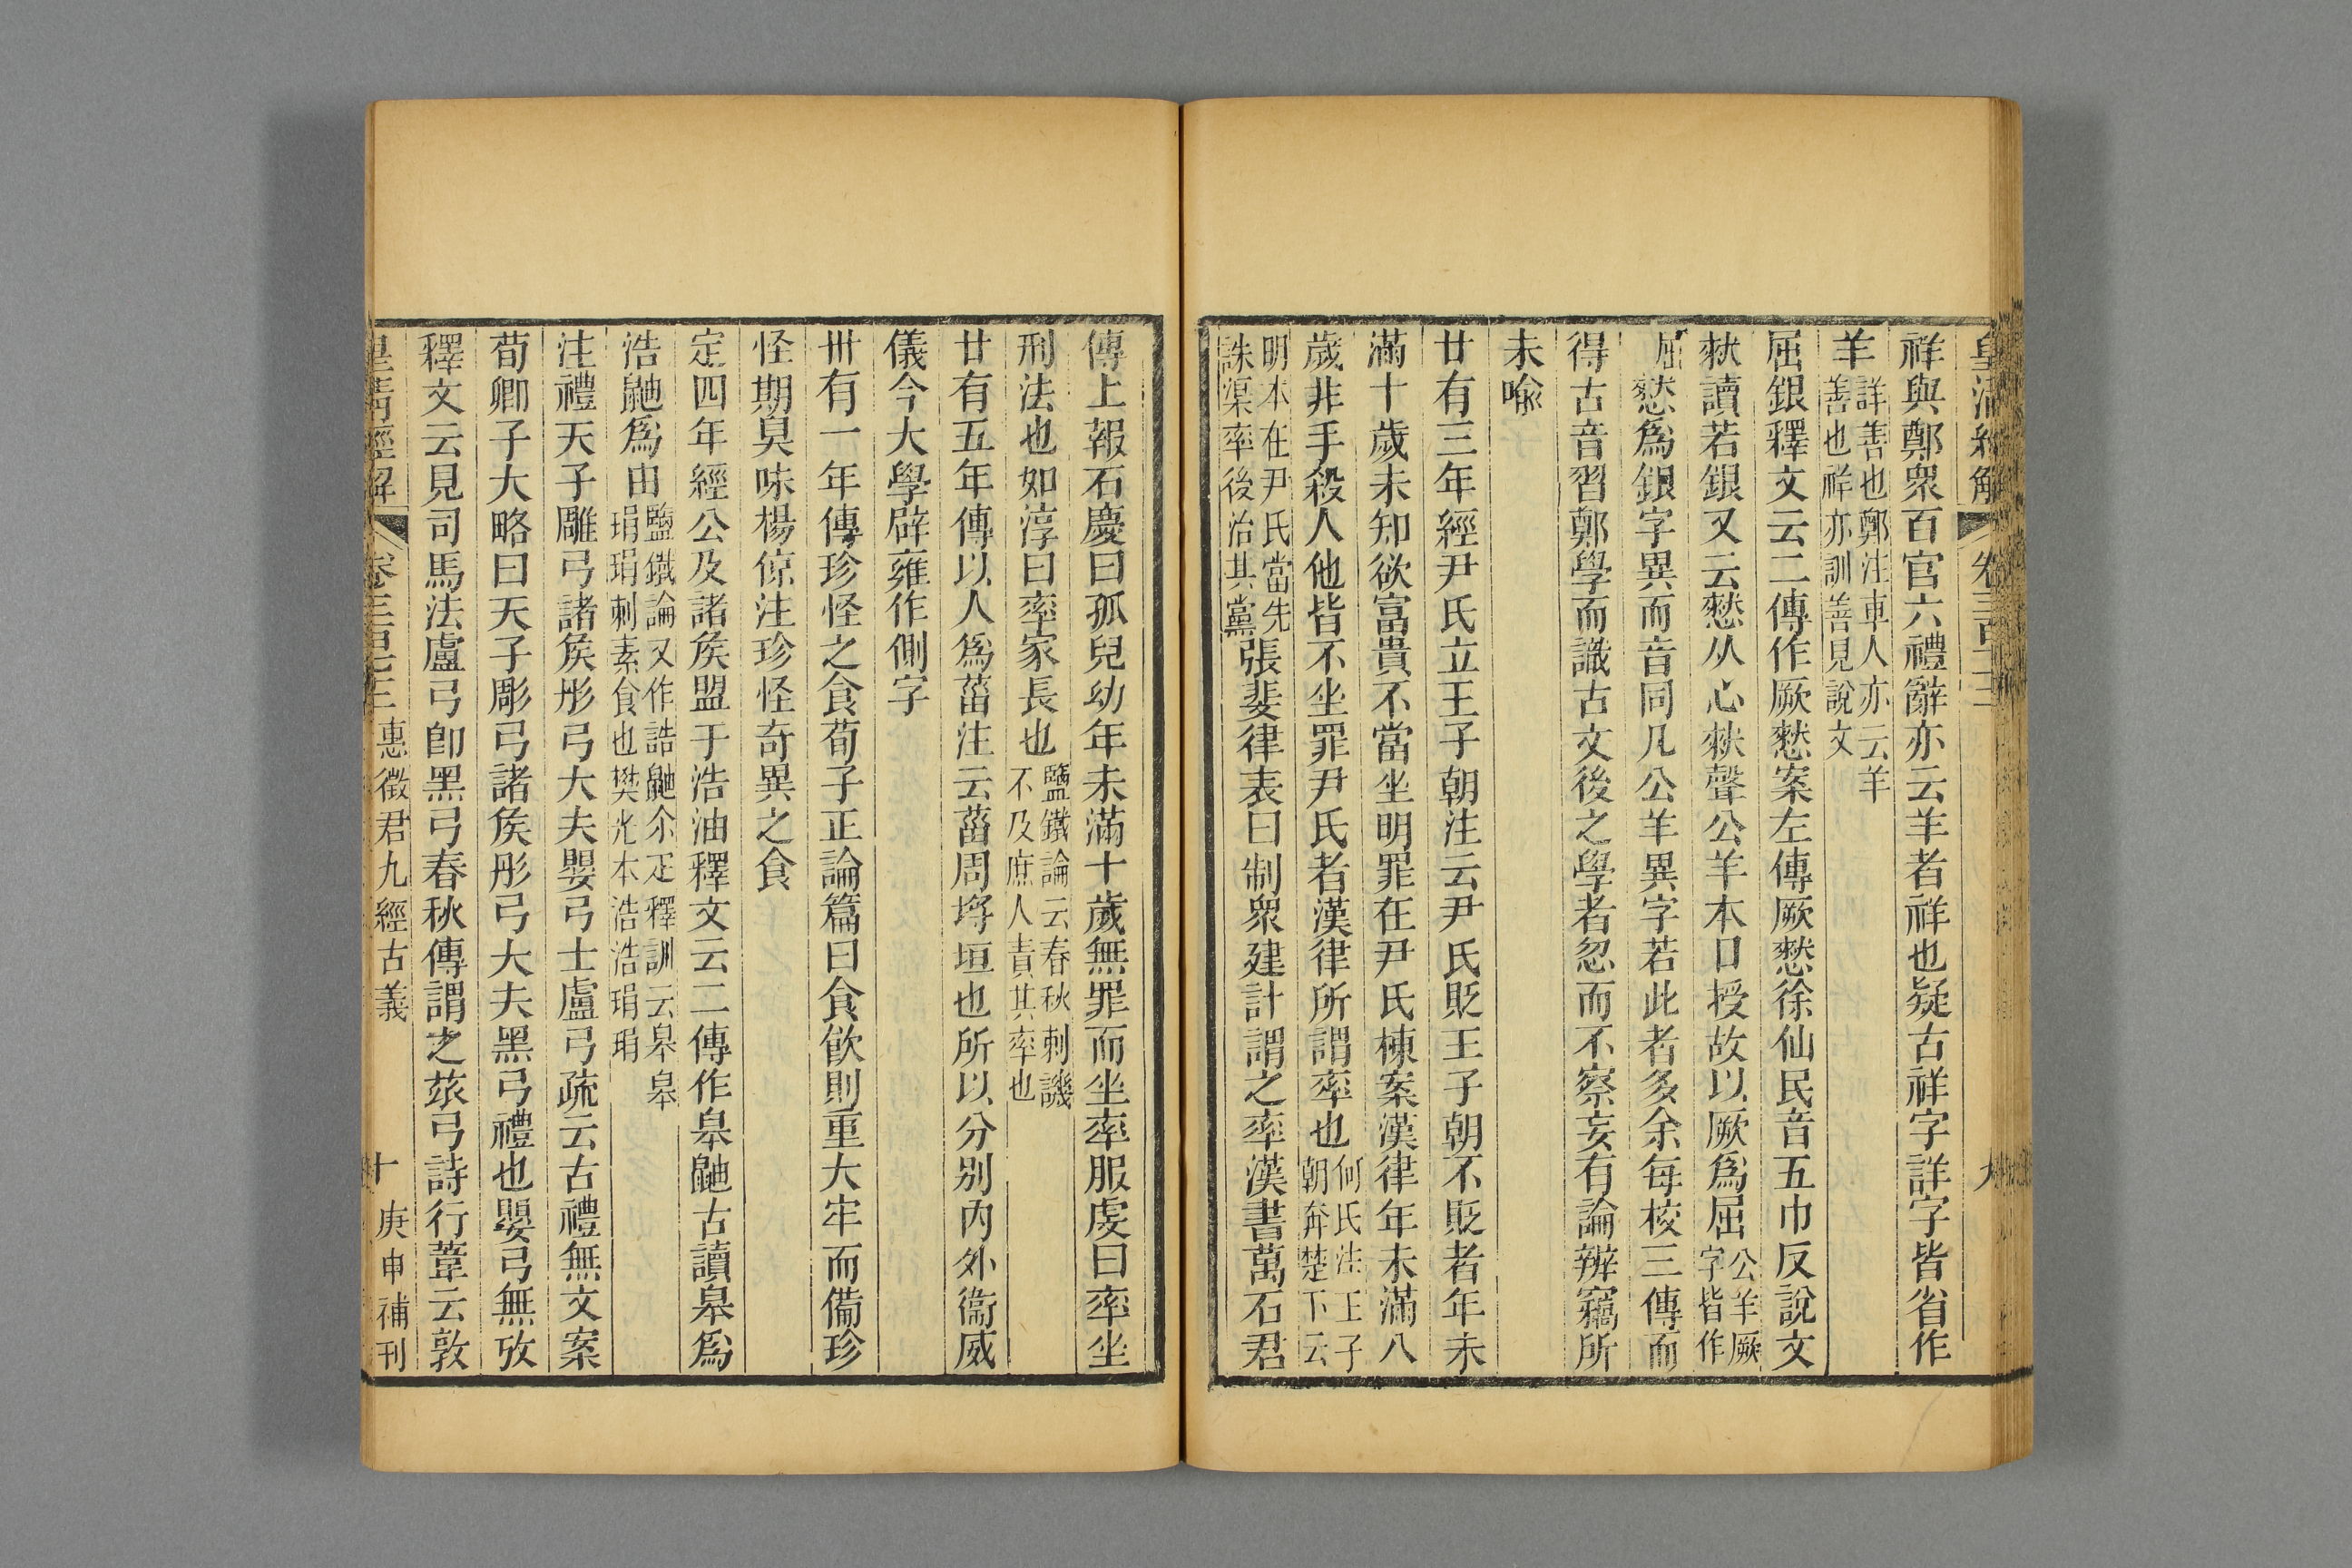 皇清經解 卷三百 九
祥與鄭衆百官六禮辭亦云羊者祥也疑古祥字詳字皆省作
羊詳善也鄭注車人亦云羊善也祥亦訓善見說文
屈銀釋文云二傳作厥憖案左傳厥憖徐仙民音五巾反說文
猌讀若銀又云憖从心猌聲公羊本口授故以厥爲屈公羊厥字皆作
屈憖爲銀字異而音同凡公羊異字若此者多余每校三傳而
得古音習鄭學而識古文後之學者忽而不察妄有論辨竊所
未喻
廿有三年經尹氏立王子朝注云尹氏貶王子朝不貶者年未
滿十歲未知欲富貴不當坐明罪在尹氏棟案漢律年未滿八
歲非手殺人他皆不坐罪尹氏者漢律所謂率也何氏注王子朝奔楚下云
明本在尹氏當先誅渠率後治其黨張斐律表曰制衆建計謂之率漢書萬石君
傳上報石慶曰孤兒幼年未滿十歲無罪而坐率服虔曰率坐
刑法也如淳曰率家長也鹽鐵論云春秋刺譏不及庶人責其率也
廿有五年傳以人爲菑注云菑周埒垣也所以分別內外衞威
儀今大學辟雍作側字
卅有一年傳珍怪之食荀子正論篇曰食飲則重大牢而備珍
怪期臭味楊倞注珍怪奇異之食
定四年經公及諸矦盟于浩油釋文云二傳作皋鼬古讀皋爲
浩鼬爲由鹽鐵論又作誥鼬尒疋釋訓云皋皋琄琄刺素食也樊光本浩浩琄琄
注禮天子雕弓諸矦彤弓大夫嬰弓士盧弓疏云古禮無文案
荀卿子大略曰天子彫弓諸矦彤弓大夫黑弓禮也嬰弓無攷
釋文云見司馬法盧弓卽黑弓春秋傳謂之玈弓詩行葦云敦
皇清經解 卷三 惠徵君九經古義 十 庚申補刊